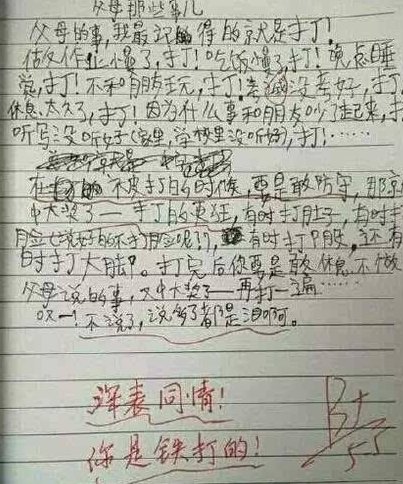 父母那些事儿
父母的事,我最记得的就是打!
做作业慢了,打!吃饭慢了打!晚点睡
觉,打!不和朋友玩,打!考试没考好,打,
休息太久了,打!因为什么事和朋友吵了起来,打
听写没听好(家里,学校里没听好),打!……
在不皮打的时候,要是敢防守,那就
中大奖了——打的更狂,有时打肚子,有时打
脸(说好的不打脸呢!),有时打P股,还有
时打大腿。打完后你要是敢休息,不做
父母说的事,又中大奖了——再打一遍……
哎一!不说了,说多了都是泪啊。
深表同情!
你是铁打的!
B+
5.3